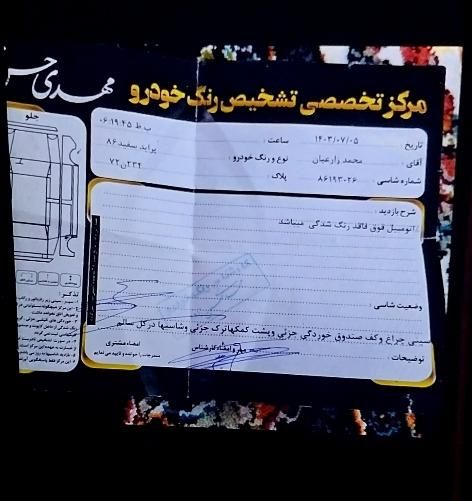 مرکز تخصصی تشخیص رنگ خودرو
مهدی
تاریخ : ۱۴۰۳/۰۷/۰۵ ساعت : ۰۶:۱۹:۴۵ ب ظ
آقای : محمد زارعیان نوع و رنگ خودرو : پراید سفید ۸۶
شماره شاسی : ۸۶۱۹۳۰۲۶ پلاک : ۷۲ن۲۳۴
جلو
شرح بازدید :
اتومبیل فوق فاقد رنگ شدگی میباشد
وضعیت شاسی :
سینی چراغ وکف صندوق خوردگی جزئی وپشت کمکهاترک جزئی وشاسیها درکل سالم
توضیحات :
مهر و امضاء کارشناس
امضاء مشتری
مندرجات را خوانده و تایید می نمایم
تذکر :